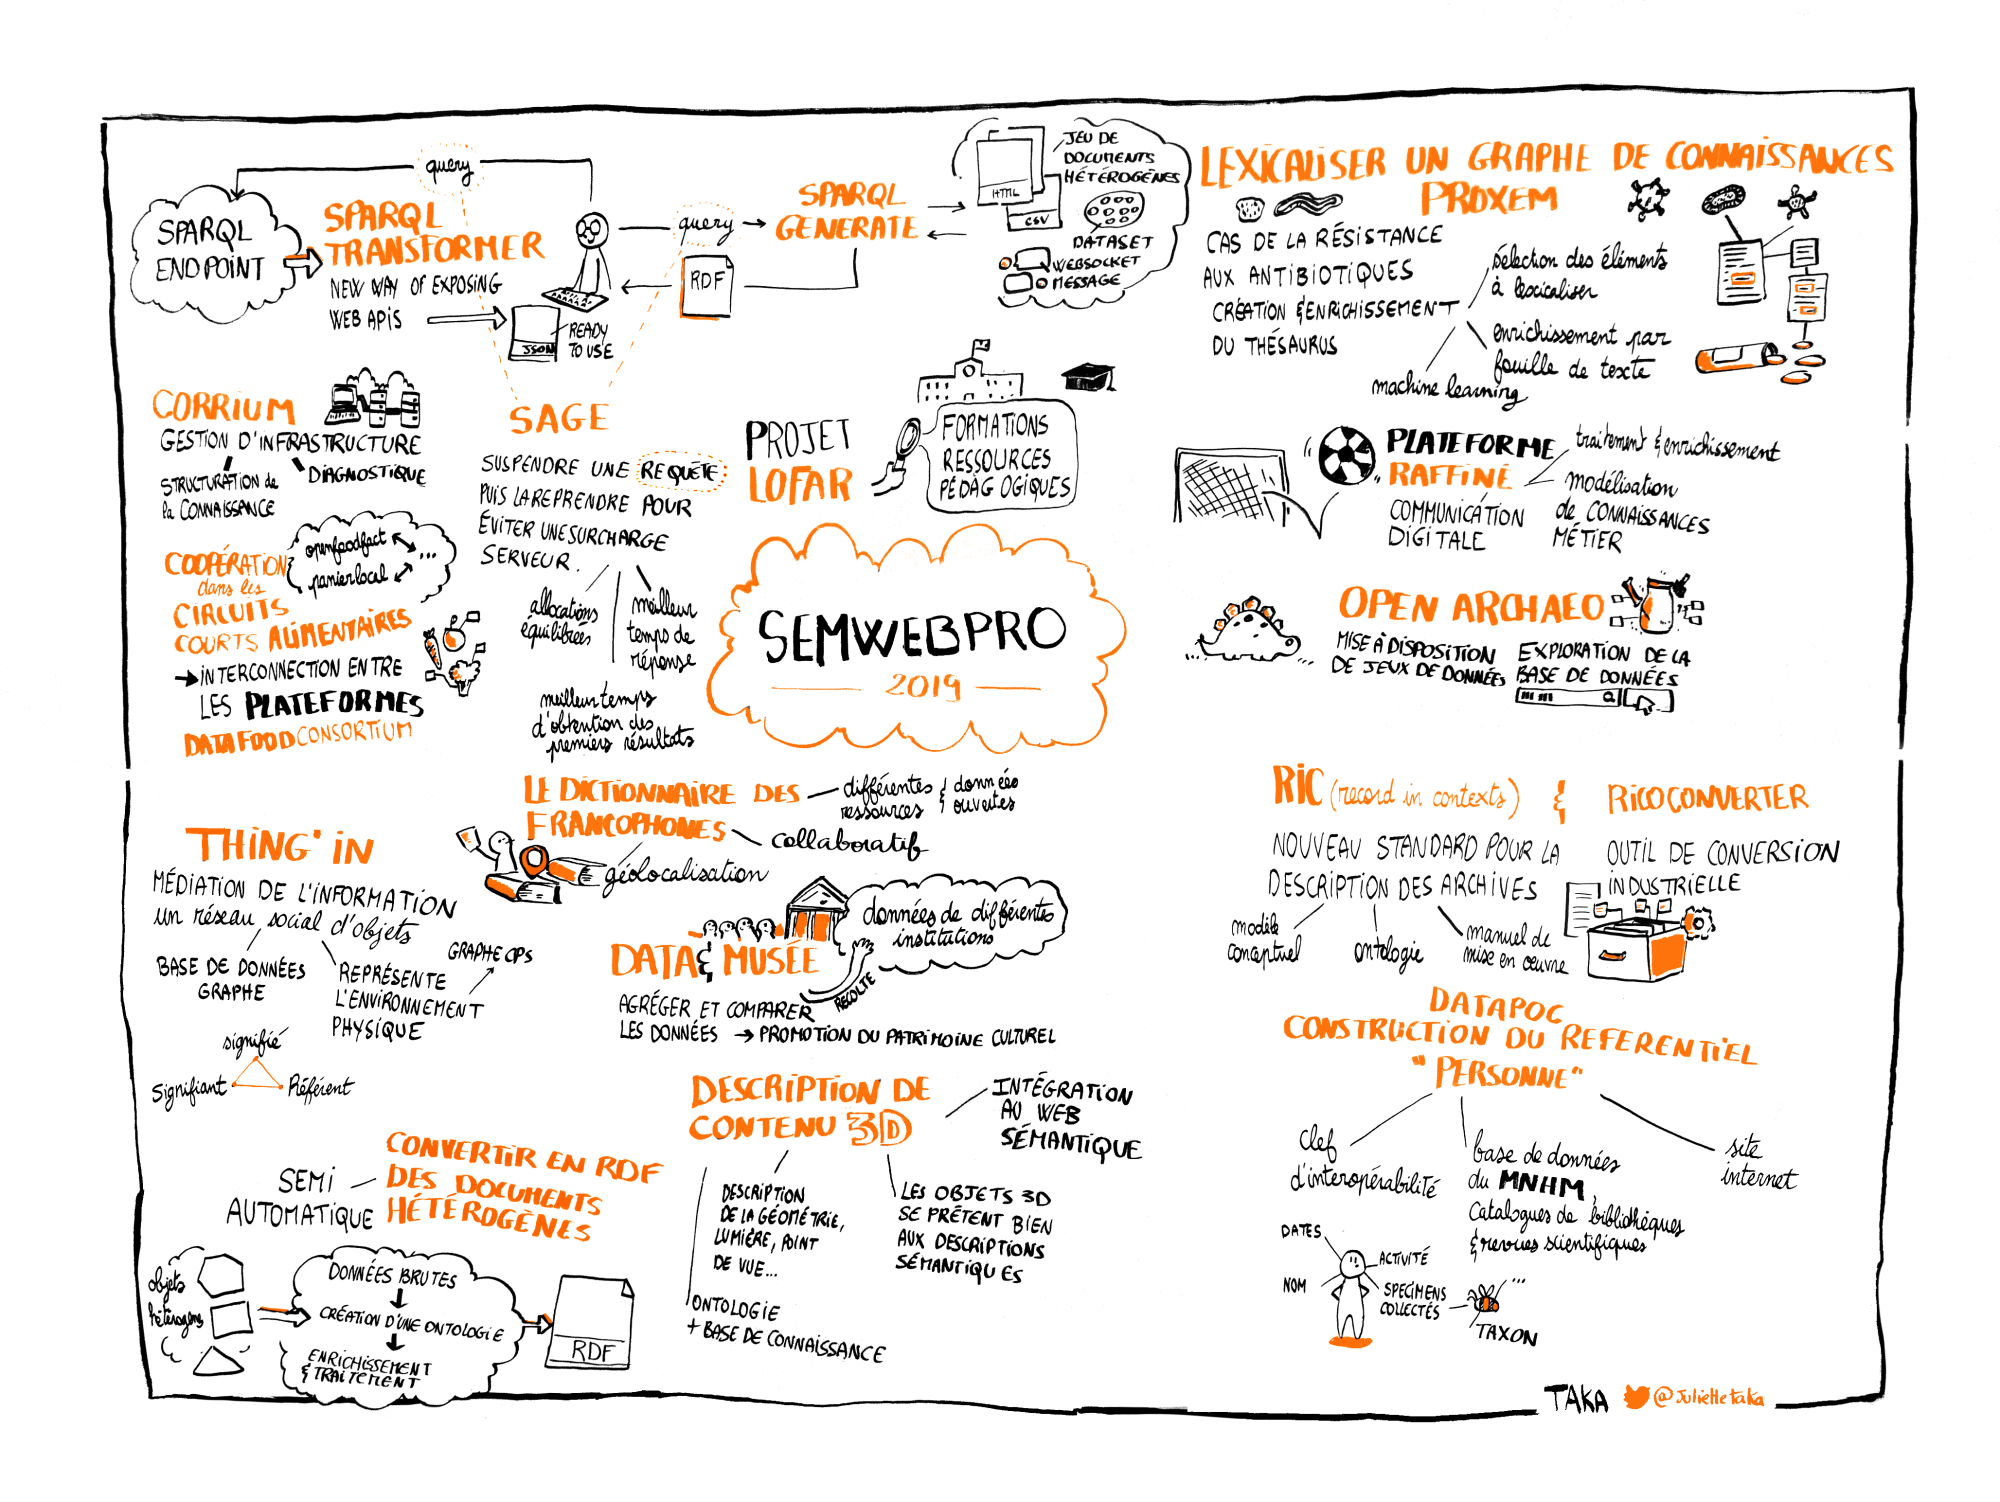 query
SPARQL
ENDPOINT
SPARQL
TRANSFORMER
NEW WAY OF EXPOSING
WEB APIS
JSON
READY
TO USE
query
RDF
SPARQL
GENERATE
JEU DE
DOCUMENTS
HÉTÉROGÈNES
HTML
CSV
DATASET
WEBSOCKET
MESSAGE
LEXICALISER UN GRAPHE DE CONNAISSANCES
PROXEM
CAS DE LA RÉSISTANCE
AUX ANTIBIOTIQUES
CRÉATION & ENRICHISSEMENT
DU THÉSAURUS
sélection des éléments
à lexicaliser
enrichissement par
fouille de texte
machine learning
CORRIUM
GESTION D'INFRASTRUCTURE
STRUCTURATION de
la CONNAISSANCE
DIAGNOSTIQUE
SAGE
SUSPENDRE UNE REQUÊTE
PUIS LA REPRENDRE POUR
ÉVITER UNE SURCHARGE
SERVEUR.
allocations
équilibrées
meilleur
temps de
réponse
meilleur temps
d'obtention des
premiers résultats
PROJET
LOFAR
FORMATIONS
RESSOURCES
PÉDAGOGIQUES
PLATEFORME
RAFFINÉ
COMMUNICATION
DIGITALE
traitement & enrichissement
modélisation
de CONNAISSANCES
MÉTIER
COOPÉRATION
dans les
CIRCUITS
COURTS ALIMENTAIRES
openfoodfact
...
panierlocal
→ INTERCONNECTION ENTRE
LES PLATEFORMES
DATA FOOD CONSORTIUM
SEMWEBPRO
2019
OPEN ARCHAEO
MISE À DISPOSITION
DE JEUX DE DONNÉES
EXPLORATION DE LA
BASE DE DONNÉES
LE DICTIONNAIRE DES
FRANCOPHONES
différentes
ressources
& données
ouvertes
collaboratif
géolocalisation
RIC (record in contexts)
&
RICOCONVERTER
NOUVEAU STANDARD POUR LA
DESCRIPTION DES ARCHIVES
modèle
conceptuel
ontologie
manuel de
mise en œuvre
OUTIL DE CONVERSION
INDUSTRIELLE
THING'IN
MÉDIATION DE L'INFORMATION
un réseau social d'objets
BASE DE DONNÉES
GRAPHE
REPRÉSENTE
L'ENVIRONNEMENT
PHYSIQUE
GRAPHE CPS
signifié
Signifiant
Référent
DATA & MUSÉE
données de différentes
institutions
RÉCOLTE
AGRÉGER ET COMPARER
LES DONNÉES → PROMOTION DU PATRIMOINE CULTUREL
DATAPOC
CONSTRUCTION DU REFERENTIEL
"PERSONNE"
clef
d'interopérabilité
base de données
du MNHM,
Catalogues de bibliothèques
& revues scientifiques
site
internet
DATES
NOM
ACTIVITÉ
SPECIMENS
COLLECTÉS
...
TAXON
DESCRIPTION DE
CONTENU 3D
INTÉGRATION
AU WEB
SÉMANTIQUE
DESCRIPTION
DE LA GÉOMÉTRIE,
LUMIÈRE, POINT
DE VUE...
LES OBJETS 3D
SE PRÊTENT BIEN
AUX DESCRIPTIONS
SÉMANTIQUES
ONTOLOGIE
+ BASE DE CONNAISSANCE
CONVERTIR EN RDF
DES DOCUMENTS
HÉTÉROGÈNES
SEMI
AUTOMATIQUE
objets
hétérogens
DONNÉES BRUTES
CRÉATION D'UNE ONTOLOGIE
ENRICHISSEMENT
& TRAITEMENT
RDF
TAKA
@Juliettetaka